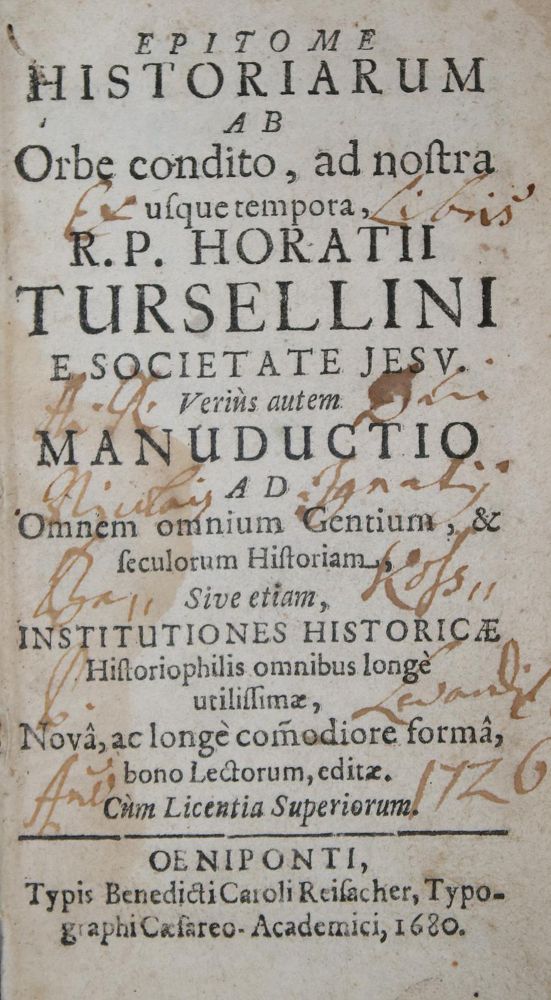 EPITOME
HISTORIARUM
AB
Orbe condito, ad noſtra
uſque tempora,
Ex Libris
R.P. HORATII
TURSELLINI
E SOCIETATE JESV.
Veriùs autem
MANUDUCTIO
AD
Nicolai Ignatij
Omnem omnium Gentium, &
ſeculorum Hiſtoriam,
Sive etiam,
INSTITUTIONES HISTORICÆ
Hiſtoriophilis omnibus longè
utiliſſimæ,
Novâ, ac longè com̃odiore formâ,
bono Lectorum, editæ.
1726
Cùm Licentia Superiorum.
OENIPONTI,
Typis Benedicti Caroli Reiſacher, Typo-
graphi Cæſareo-Academici, 1680.